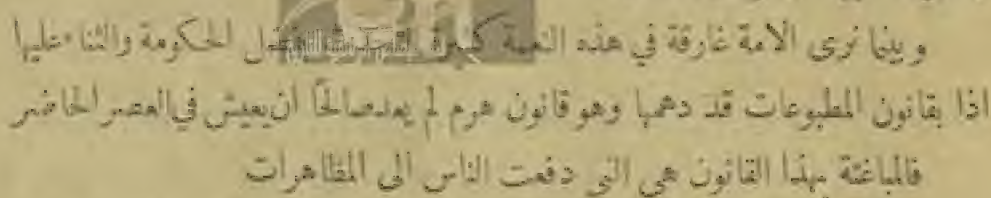 وبينما نرى الامة غارقة في هذه النعمة كثيرة التحدث بفضل الحكومة والثناء عليها
اذا بقانون المطبوعات قد دهمها وهو قانون هرم لم يعد صالحًا ان يعيش في العصر الحاضر
فالمباغتة بهذا القانون هي التي دفعت الناس الى المظاهرات